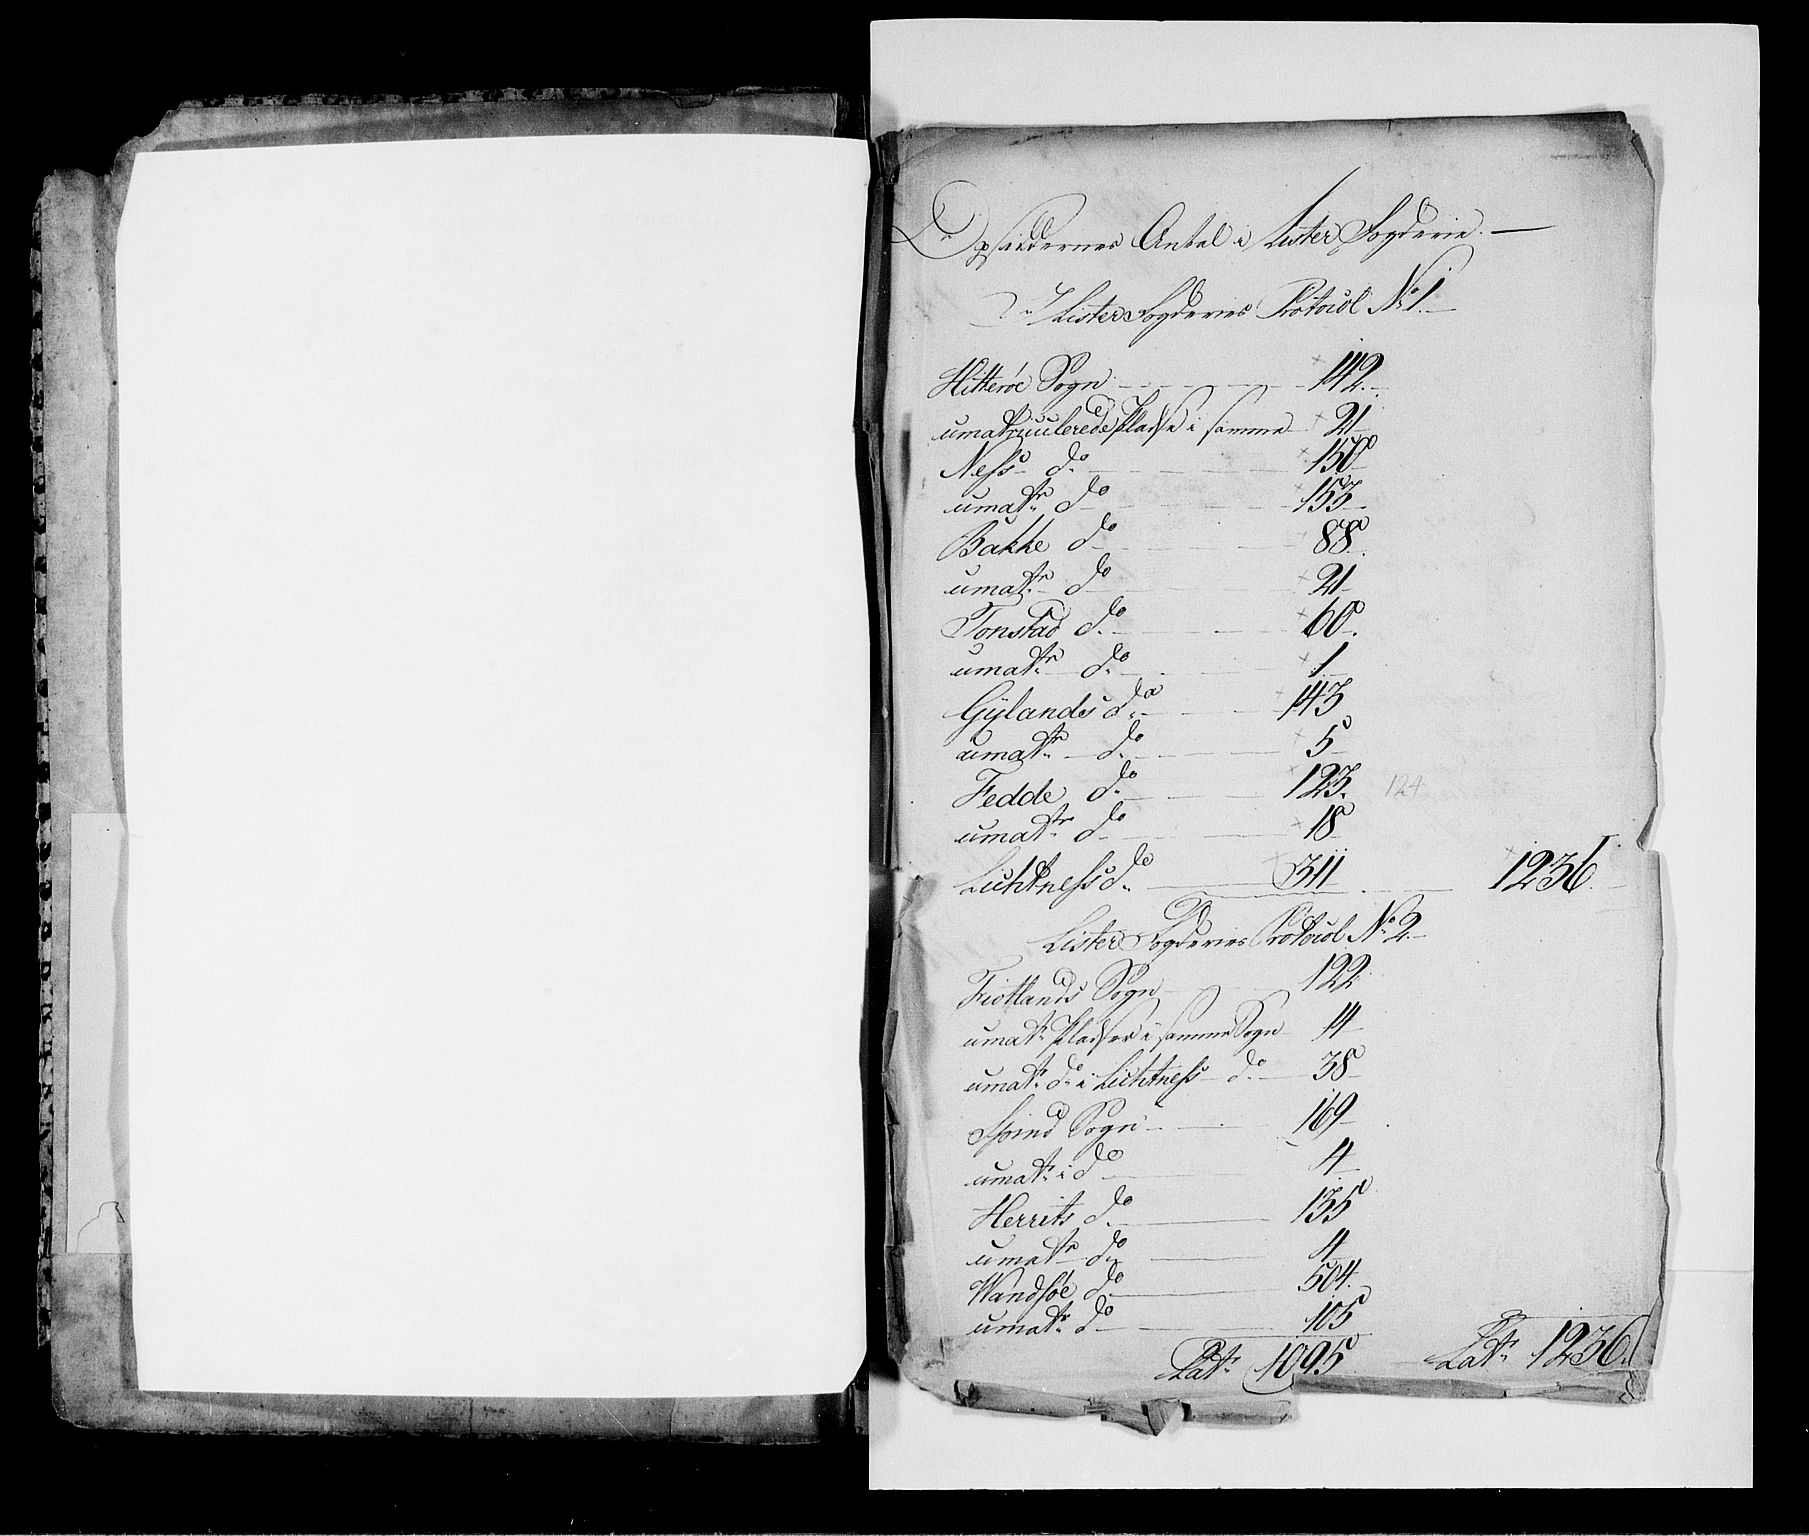 Opsiddernes Antal i Lister Fogderie. —
I Lister Fogderies Protocol No 1.
Hitteröe Sogn 142.
umatriculerede Pladse i samme 21
Ness do 150
umatr do 153
Bakke do 88
umatr do 21
Tonstad do 60
umatr do 1
Gÿlands do 143
umatr do 5
Fedde do 123. 124
umatr do 18
Lichtness do 311 1236.
Lister Fogderies Protocol No 2.
Fiotlands Sogn 122
umatr Pladser i samme Sogn 14
umatr do i Lichtness do 38
Spind Sogn 169
umatr i do 4
Herrits do 135
umatr do 4
Wandsöe do 504.
umatr do 105
Latr 1095 Latr 1236.